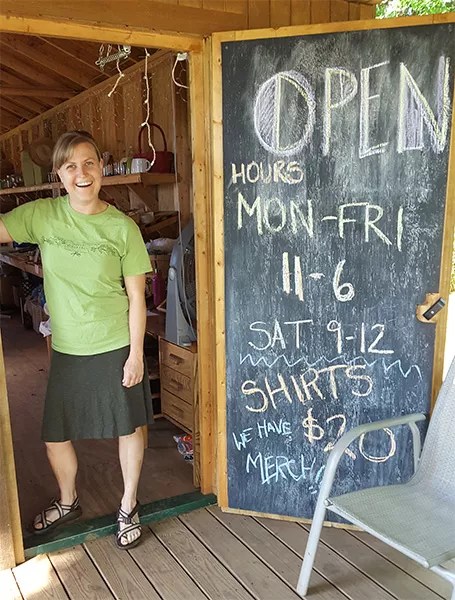 OPEN
HOURS
MON-FRI
11-6
SAT 9-12
SHIRTS
$20
WE HAVE
MERCH!